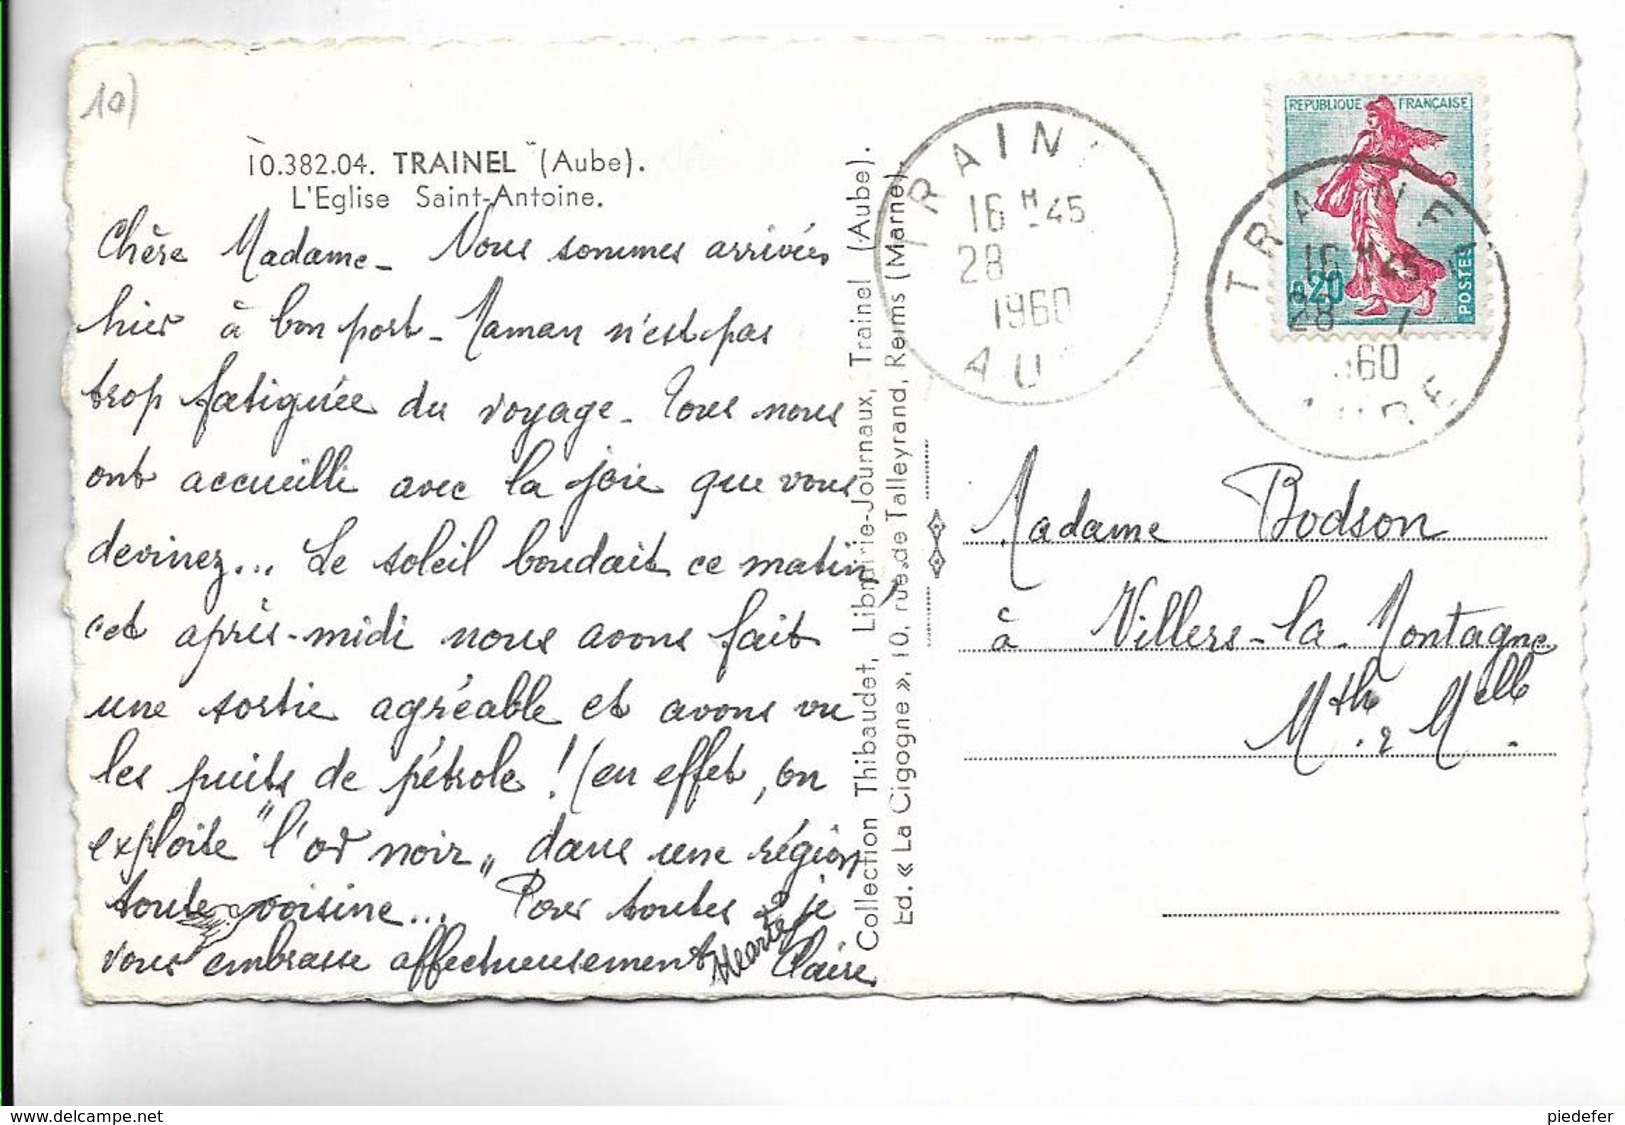 10)
10.382.04. TRAINEL (Aube).
L'Eglise Saint-Antoine.
Chère Madame - Nous sommes arrivées
hier à bon port - Maman n'est pas
trop fatiguée du voyage - Tous nous
ont accueilli avec la joie que vous
devinez... Le soleil boudait ce matin,
cet après-midi nous avons fait
une sortie agréable et avons vu
les puits de pétrole ! (en effet, on
exploite "l'or noir" dans une région
toute voisine... Pour toutes je
vous embrasse affectueusement
Claire
Collection Thibaudet, Librairie-Journaux, Trainel (Aube).
Ed. « La Cigogne », 10, rue de Talleyrand, Reims (Marne).
TRAIN
16 H 45
28
1960
AU
REPUBLIQUE FRANÇAISE
0,20
POSTES
TRAINEL
16 H 45
28 - 7
960
AUBE
Madame Bodson
à Villers-la-Montagne
Mthe & Melle
www.delcampe.net
piedefer